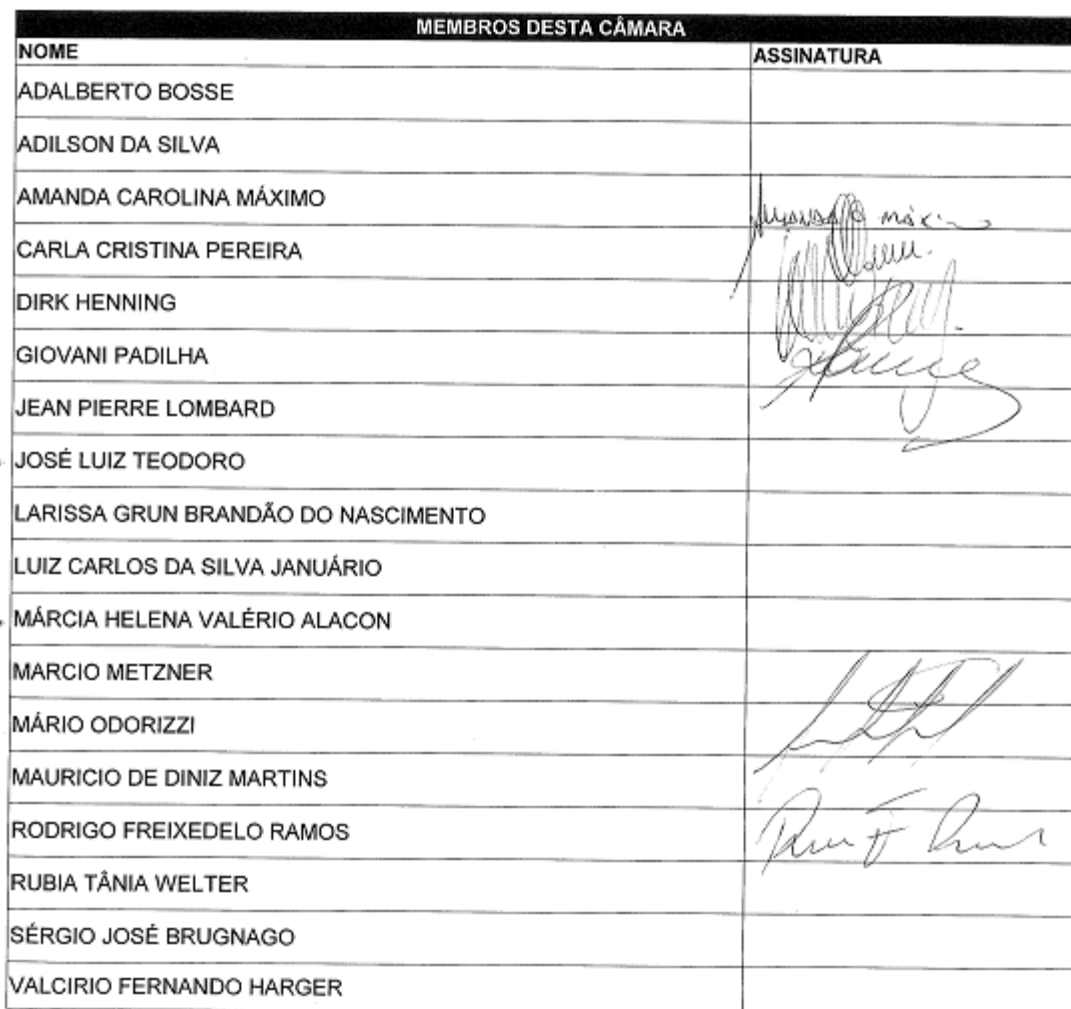 MEMBROS DESTA CÂMARA
NOME ASSINATURA
ADALBERTO BOSSE
ADILSON DA SILVA
AMANDA CAROLINA MÁXIMO
CARLA CRISTINA PEREIRA
DIRK HENNING
GIOVANI PADILHA
JEAN PIERRE LOMBARD
JOSÉ LUIZ TEODORO
LARISSA GRUN BRANDÃO DO NASCIMENTO
LUIZ CARLOS DA SILVA JANUÁRIO
MÁRCIA HELENA VALÉRIO ALACON
MARCIO METZNER
MÁRIO ODORIZZI
MAURICIO DE DINIZ MARTINS
RODRIGO FREIXEDELO RAMOS
RUBIA TÂNIA WELTER
SÉRGIO JOSÉ BRUGNAGO
VALCIRIO FERNANDO HARGER